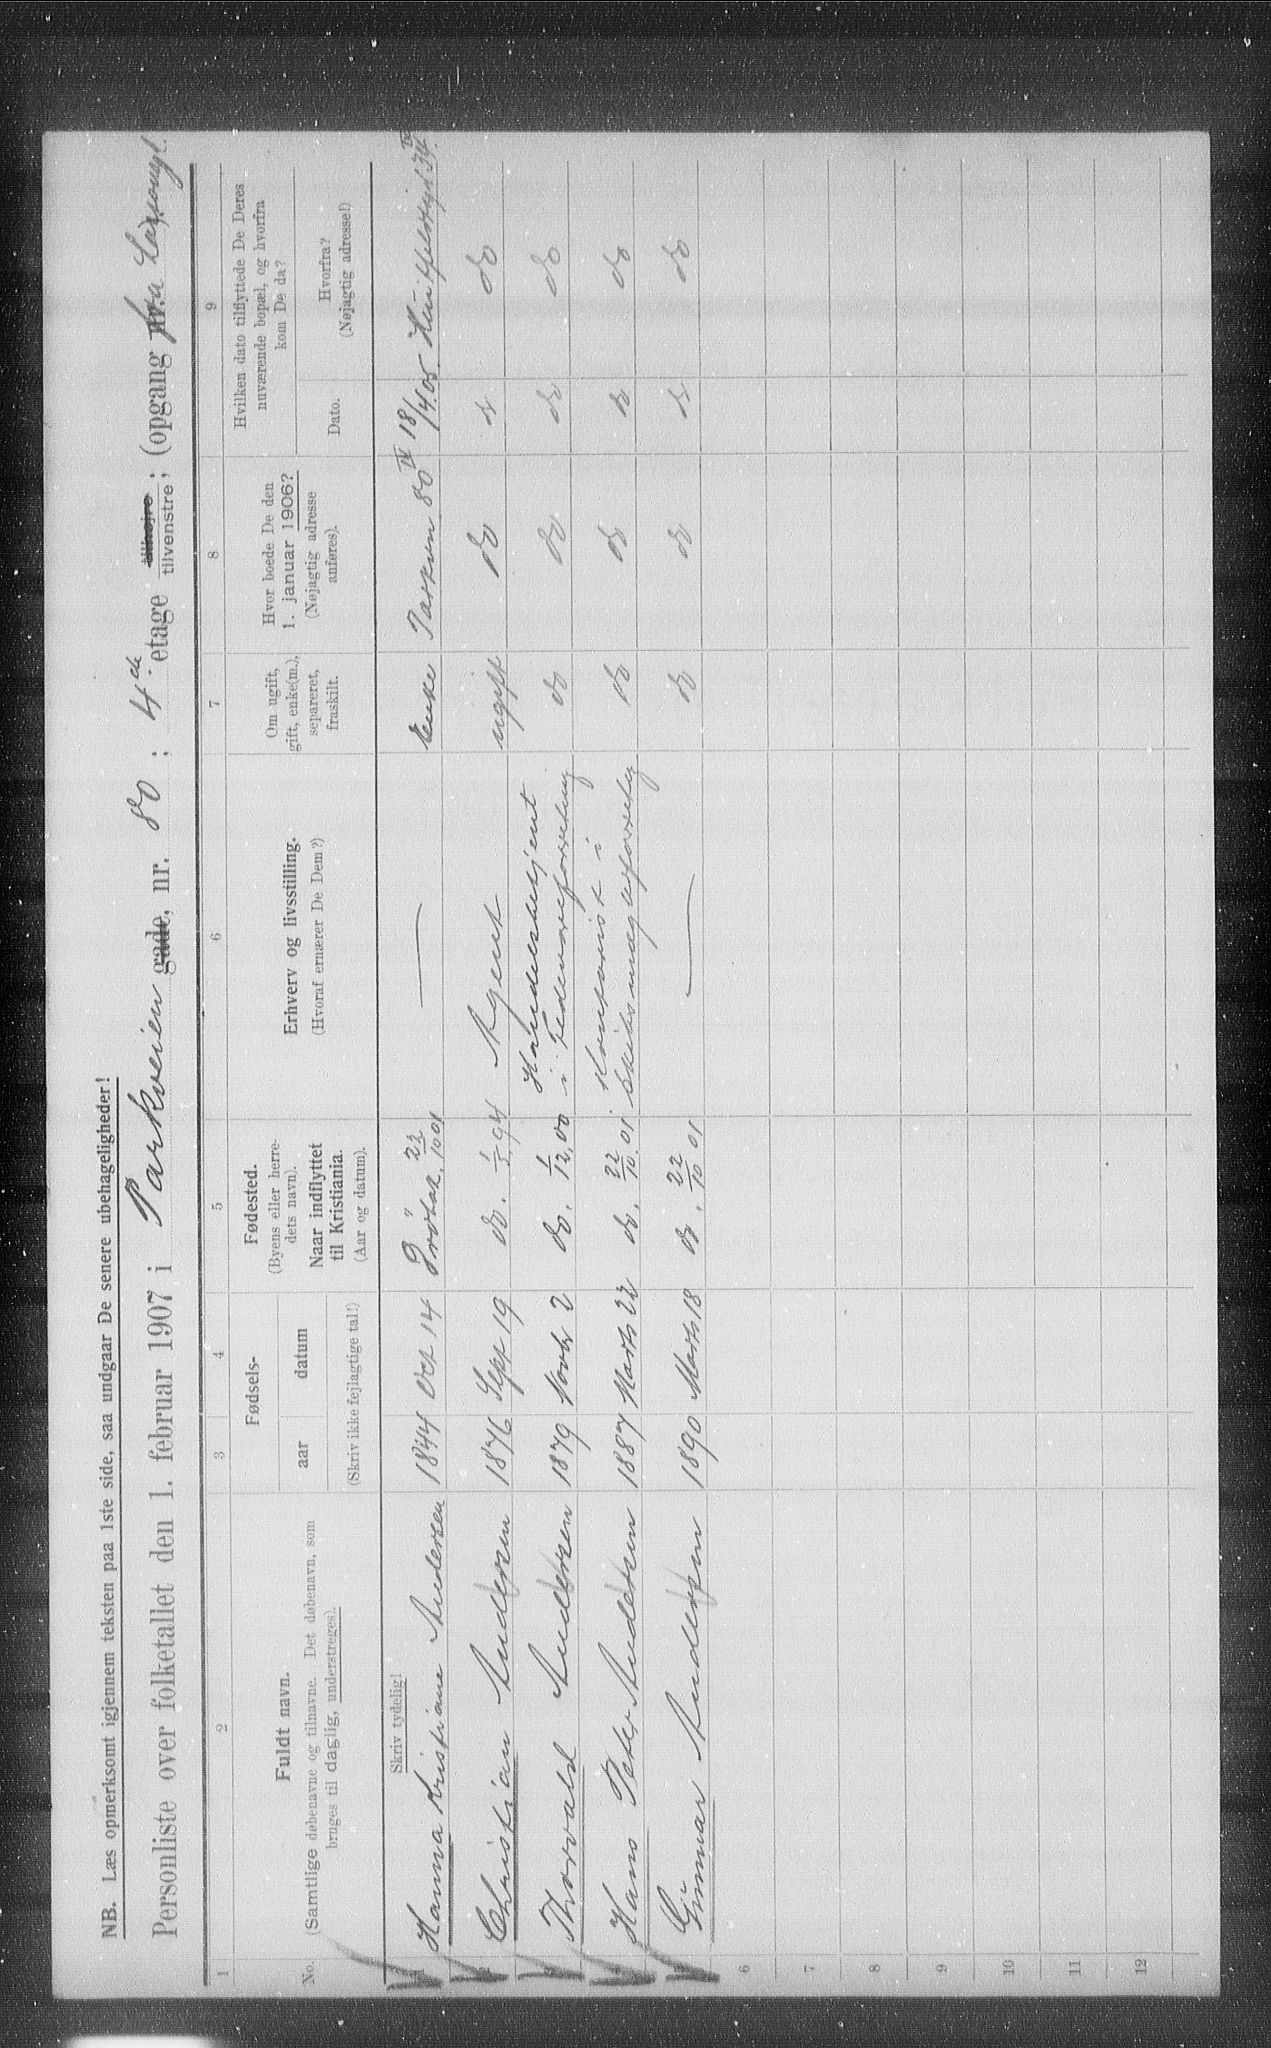 NB. Læs opmerksomt igjennem teksten paa 1ste side, saa undgaar De senere ubehageligheder!
Personliste over folketallet den 1. februar 1907 i Parkveien gade, nr. 80; 4de etage tilhøjre tilvenstre; (opgang fra
1 2 3 4 5 6 7 8 9
No.
Fuldt navn.
(Samtlige døbenavne og tilnavne. Det døbenavn, som
bruges til daglig, understreges).
Fødsels-
aar datum
(Skriv ikke fejlagtige tal!)
Fødested.
(Byens eller herre-
dets navn).
Naar indflyttet
til Kristiania.
(Aar og datum).
Erhverv og livsstilling.
(Hvoraf ernærer De Dem?)
Om ugift,
gift, enke(m.),
separeret,
fraskilt.
Hvor boede De den
1. januar 1906?
(Nøjagtig adresse
anføres).
Hvilken dato tilflyttede De Deres
nuværende bopæl, og hvorfra
kom De da?
Dato.
Hvorfra?
(Nøjagtig adresse!)
Skriv tydelig!
1 Hanna Kristiane Andersen 1844 Oct 14 Drøbak 22/10 01 — Enke Parkvn. 80 IV 18/4 05 Huitfeldtsgd 34 IV
2 Christian Andersen 1876 Sept 19 do. 1/5 94 Agent ugift do do do
3 Thorvald Andersen 1879 Novbr 2 do. 1/12 00 Handelsbetjent
i Fedevareforretning do do do do
4 Hans Peter Andersen 1887 Marts 22 do. 22/10 01 Kontorist i
Skibsmæglerforretng do do do do
5 Gunnar Andersen 1890 Marts 18 do. 22/10 01 — do do do do
6
7
8
9
10
11
12